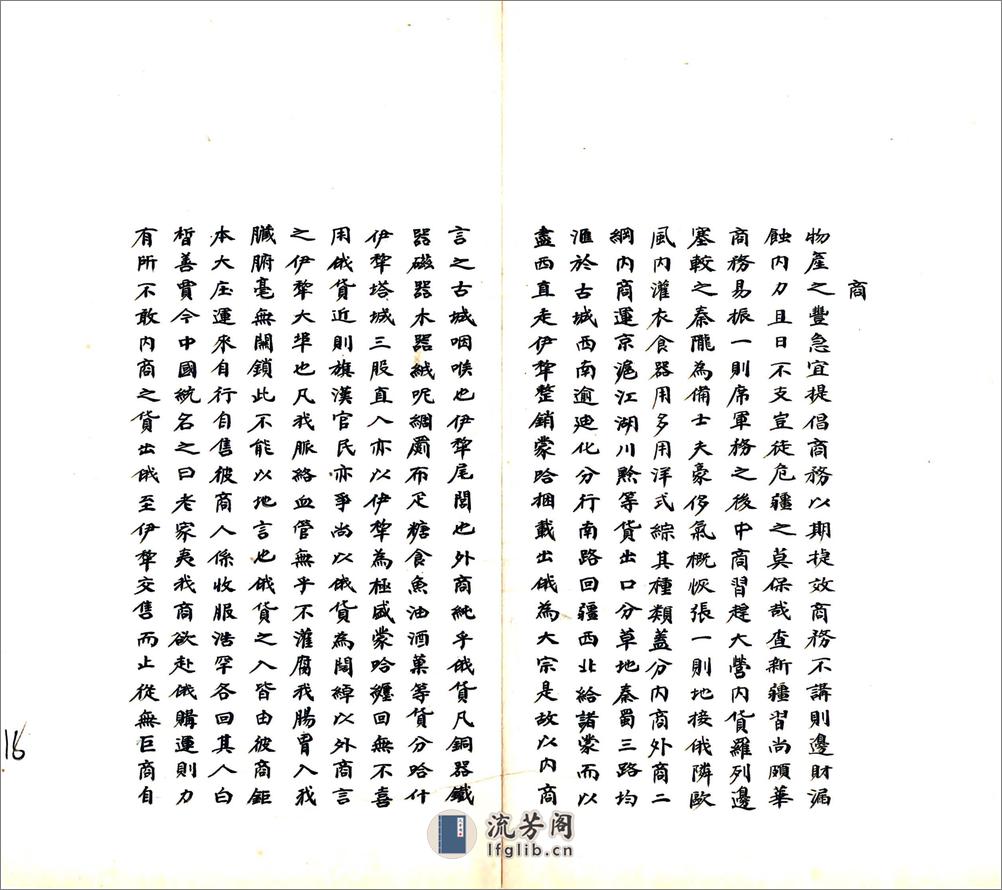 商
物產之豐急宜提倡商務以期提效商務不講則邊財漏
蝕內力且日不支豈徒危疆之莫保哉查新疆習尚頗華
商務易振一則席軍務之後中商習趕大營內貨羅列邊
塞較之秦隴為備士夫豪侈氣概恢張一則地接俄隣歐
風內灌衣食器用多用洋式綜其種類蓋分內商外商二
綱內商運京滬江湖川黔等貨出口分草地秦蜀三路均
滙於古城西南逾廸化分行南路回疆西北給諸蒙而以
盡西直走伊犂整銷蒙哈梱載出俄為大宗是故以內商
言之古城咽喉也伊犂尾閭也外商純乎俄貨凡銅器鐵
器磁器木器絨呢綢罽布疋糖食魚油酒菓等貨分哈什
伊犂塔城三股直入亦以伊犂為極盛蒙哈纏回無不喜
用俄貨近則旗漢官民亦爭尚以俄貨為闊綽以外商言
之伊犂大埠也凡我脈絡血管無乎不灌腐我腸胃入我
臟腑毫無關鎖此不能以地言也俄貨之入皆由彼商鉅
本大庄運來自行自售彼商人係收服浩罕各回其人白
皙善賈今中國統名之曰老家夷我商欲赴俄購運則力
有所不敢內商之貨出俄至伊犂交售而止從無巨商自
16
流芳阁
lfglib.cn